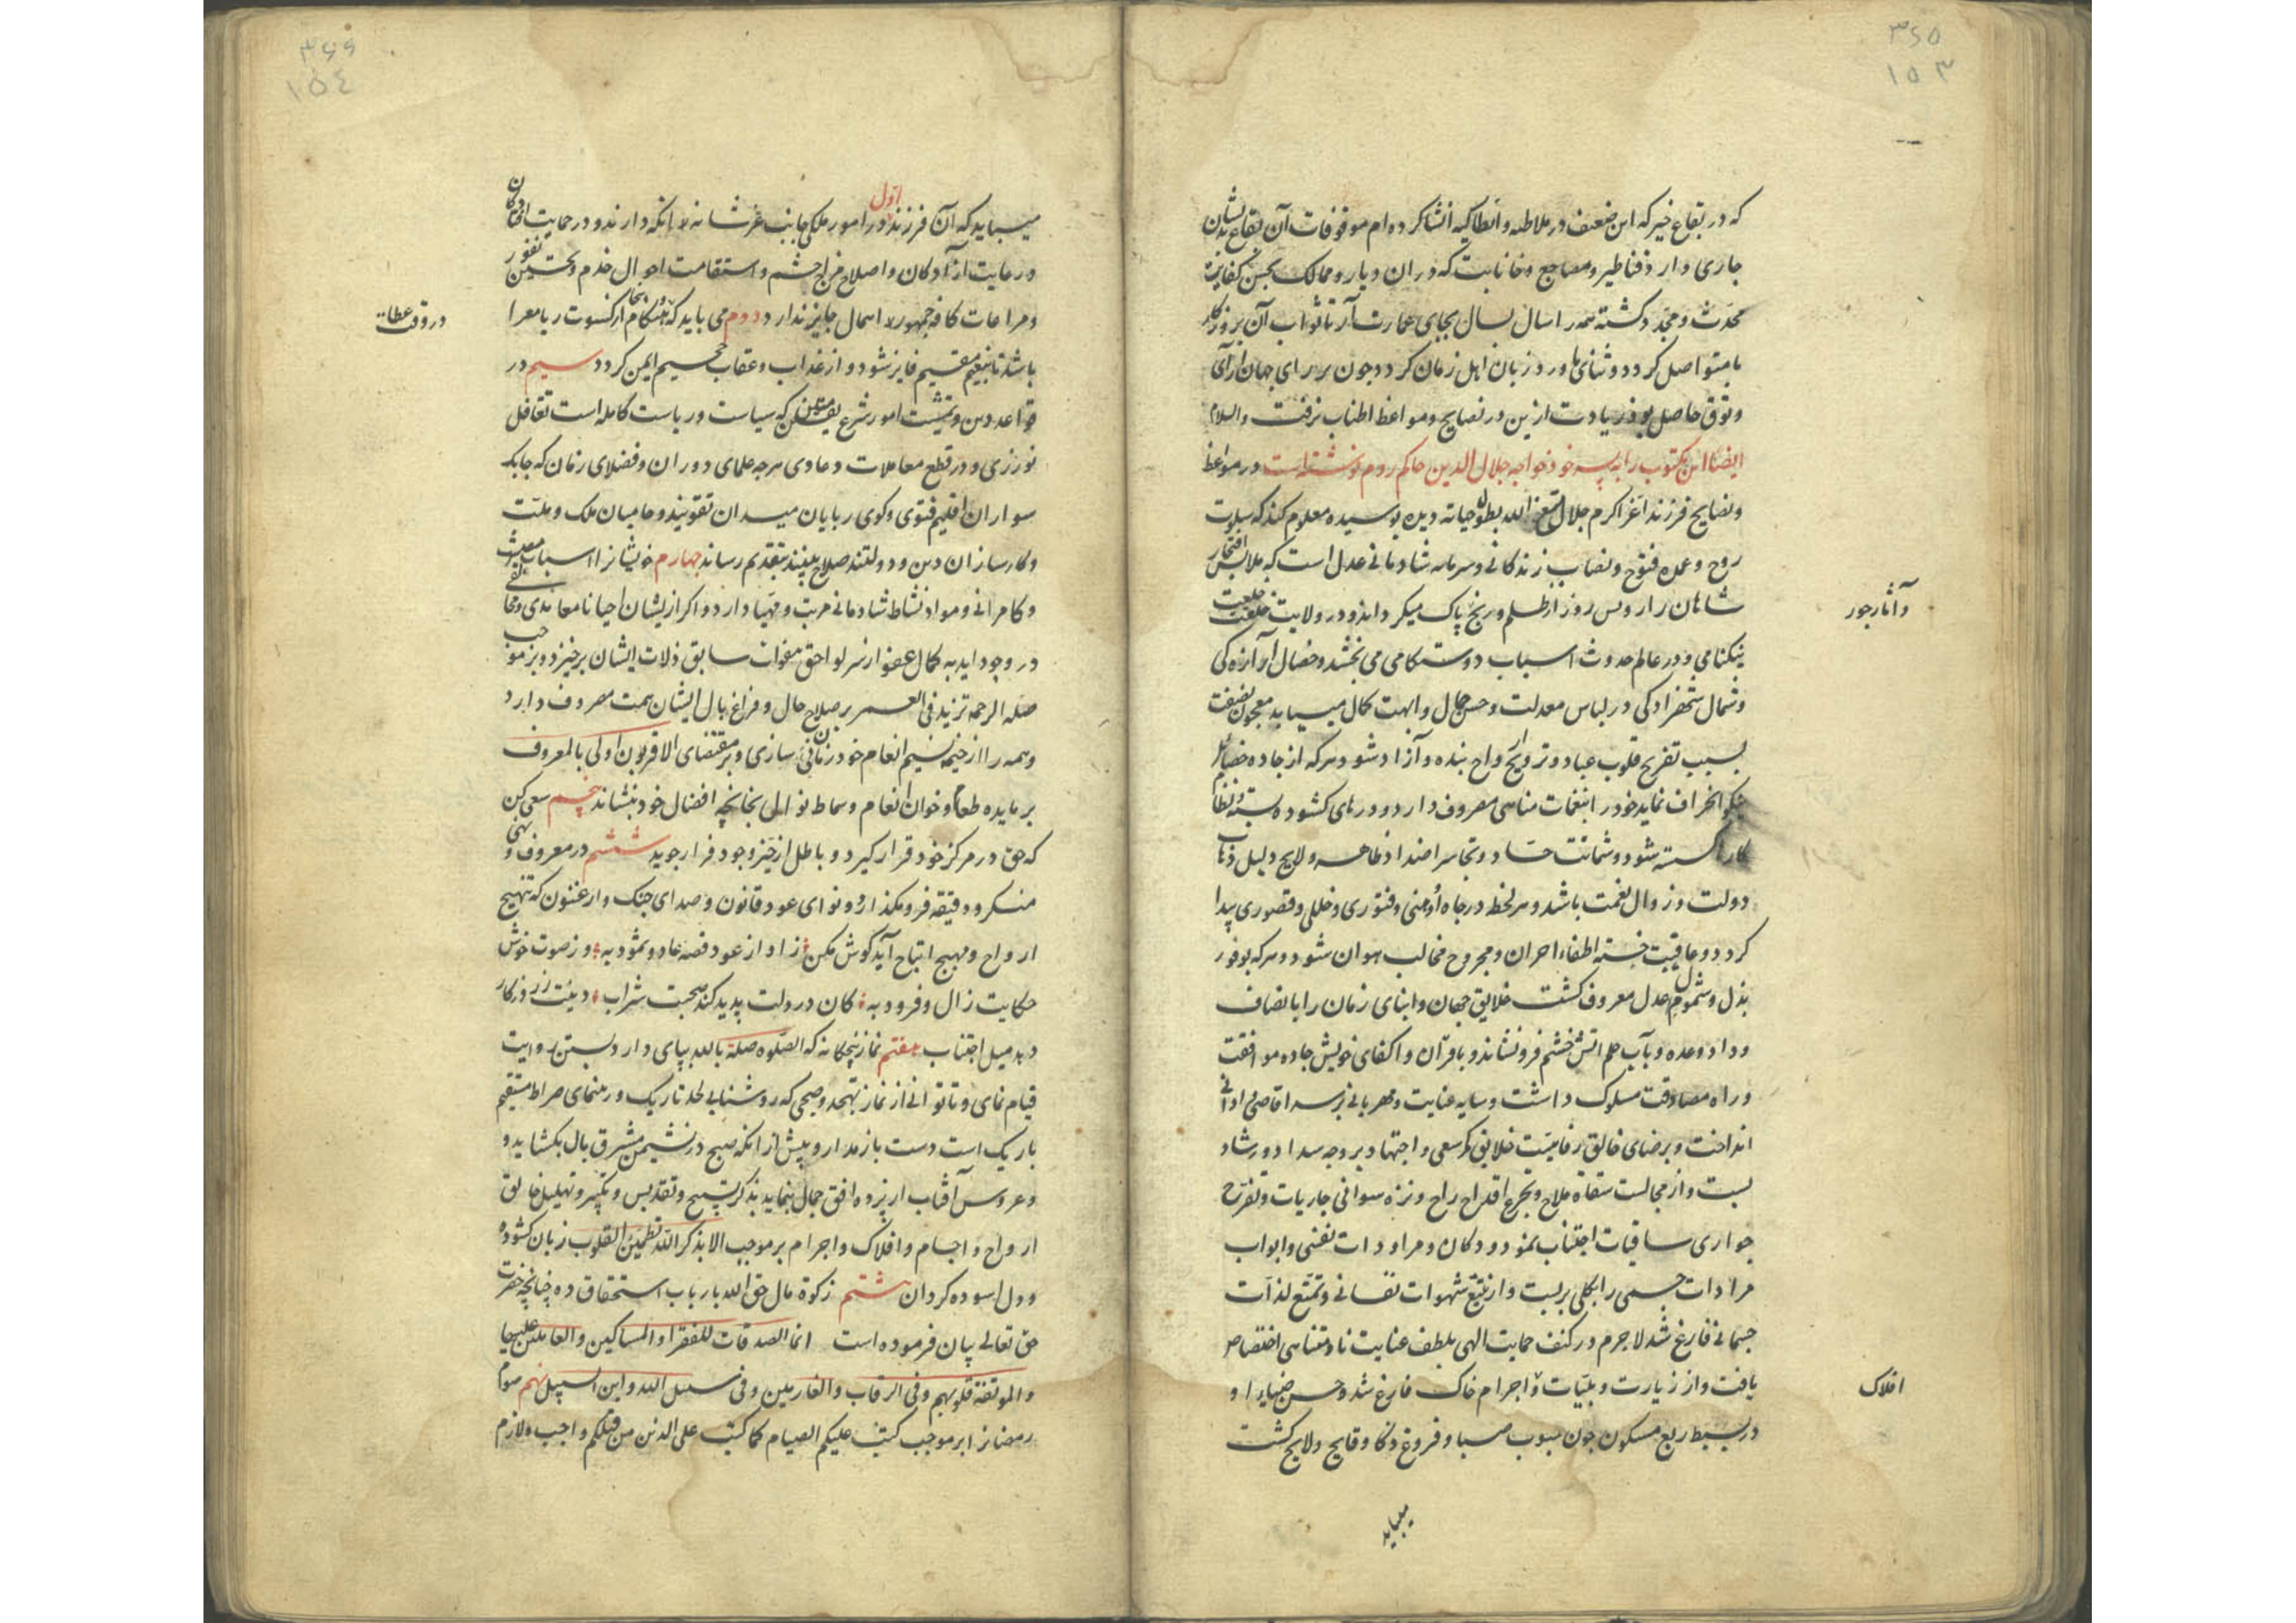 ۳۶۵
۱۵۳
که در بقاع خیر که این ضعیف در ملاطیه و انطاکیه انشا کرده‌ام موقوفات آن بقاع بدیشان
جاری دارد و قناطیر و مصانع و خانات که در ان دیار و ممالک بحسن کفایت
محدث و مجدد کشته همه را سال بسال بجای عمارت آرد تا ثواب آن بروزکار
ما متواصل کردد و ثنای ما ورد زبان اهل زمان کردد چون بر رای جهان آرای
وثوق حاصل بود زیادت ازین در نصایح و مواعظ اطناب نرفت والسلام
ایضا این مکتوب را به پسر خود خواجه جلال الدین حاکم روم نوشته است در مواعظ
و نصایح فرزند اعز اکرم جلال متع الله بطول حیاته دیده بوسیده معلوم کند که سلوت
روح و عمده فتوح و نصاب زندکانی و سرمایه شادمانی عدل است که ملابس افتخار
شاهان را روس روز از ظلم و رنج پاک میکرداند و در ولایت خلعت
و آثار جور
نیکنامی و در عالم حدوث اسباب دوستکامی می بخشد و خصال آزادکی
و شمال شهزادکی در لباس معدلت و حسن جمال و ابهت کمال میباید معجون نصفت
بسبب تفریح قلوب عباد و ترویح ارواح بنده و آزاد شود و هرکه از جاده خصایل
نیکو انحراف نماید خود را بنغمات مناهی مصروف دارد و درهای کشوده بسته و نظام
کار کسسته شود و شماتت حساد و تجاسر اضداد ظاهر و لایح دلیل ذهاب
دولت و زوال نعمت باشد و هر لحظه در جاه او وهنی و فتوری و خللی و قصوری پیدا
کردد و عاقبت خسته اظفار احزان و مجروح مخالب هوان شود و هرکه بوفور
بذل و شمول عدل معروف کشت خلایق جهان و ابنای زمان را بانصاف
و داد وعده و بآب حلم اتش خشم فرونشاند و با قران و اکفای خویش جاده موافقت
و راه مصادقت مسلوک داشت و سایه عنایت و مهربانی بر سر اقاصی و ادانی
انداخت و برضای خالق رفاهیت خلایق کمر سعی و اجتهاد بر وجه سداد و رشاد
بست و از مجالست سقاه ملاح و تجرع اقداح راح و نزه سواقی جاریات و تفرج
جواری ساقیات اجتناب نمود و دکان مراودات نفسی و ابواب
مرادات جسمی را بکلی بربست و از تتبع شهوات نفسانی و تمتع لذات
جسمانی فارغ شد لاجرم در کنف حمایت الهی بلطف عنایت نامتناهی اختصاص
یافت و از زیارت و بلیات و اجرام خاک فارغ شد و حسن ضیاء او
افلاک
در بسیط ربع مسکون چون هبوب صبا و فروغ ذکا و فایح و لایح کشت
میباید
۳۶۶
۱۵٤
میباید که آن فرزند اول در امور ملکی جانب عرشانه لا انکه دارند و در حمایت افتادکان
و رعایت آزادکان و اصلاح مزاج حشم و استقامت احوال خدم و تحسین ثغور
و مراعات کافه جمهور لا اهمال جایز ندارد دوم می باید که بهنکام از کسوت ریا معرا
در وقت عطا
باشد تا بنعیم مقیم فایز شود و از عذاب و عقاب جحیم ایمن کردد سیم در
قواعد دین و تمشیت امور شرع متین که سیاست و ریاست کامله است تغافل
نورزی و در قطع معاملات و دعاوی هرچه علمای دوران و فضلای زمان که چابک
سواران اقلیم فتوی و کوی ربایان میدان تقوی‌اند و حامیان ملک و ملت
و کارسازان دین و دولتند صلاح بینند بتقدیم رساند چهارم خویشانرا اسباب معیشت
و کامرانی و مواد نشاط شادمانی مرتب و مهیا دارد و اکر ازیشان احیانا معاندی و مخالفتی
در وجود اید به کمال عفو از سر لواحق هفوات سابق ذلات ایشان برخیزد و بر موجب
صله الرحم تزید فی العمر بر صلاح حال و فراغ بال ایشان همت مصروف دارد
و همه را از خیمه نسیم انعام خود ریان سازی و بر مقتضای الاقربون اولی بالمعروف
بر مایده طعام و خوان انعام و سماط نوال بخانچه افضال خود بنشاند پنجم سعی کن
که حق در مرکز خود قرار کیرد و باطل از حیز وجود فرار جوید ششم در معروف و نهی
منکر دقیقه فرو مکذار و نوای عود و قانون و صدای چنک و ارغنون که تنهیج
ارواح و مهیج اتباح آید کوش مکن ز اواز عود قصه عاد و ثمود به وز صوت خوش
حکایت زال و فرود به کان در دلت پدید کند صحبت شراب
دهد میل اجتناب هفتم نماز پنجکانه که الصلوه صلة بالله بپای دار و بسنن رواتب
قیام نمای و تا توانی از نماز تهجد و ضحی که روشنایی لحد تاریک و رهنمای صراط مستقیم
باریک است دست باز مدار و پیش از انکه صبح در نشیمن مشرق بال بکشاید و
و عروس آفتاب از پرده افق جمال بنماید بذکر تسبیح و تقدیس و تکبیر و تهلیل خالق
ارواح و اجسام و افلاک و اجرام بر موجب الا بذکر الله تطمئن القلوب زبان کشوده
و دل اسوده کردان هشتم زکوة مال حق الله بارباب استحقاق ده چنانچه حضرت
حق تعالی بیان فرموده است انما الصدقات للفقراء والمساکین والعاملین علیها
والمولفة قلوبهم وفی الرقاب والغارمین وفی سبیل الله وابن السبیل نهم صوم
رمضان را بر موجب کتب علیکم الصیام کما کتب علی الذین من قبلکم واجب و لازم